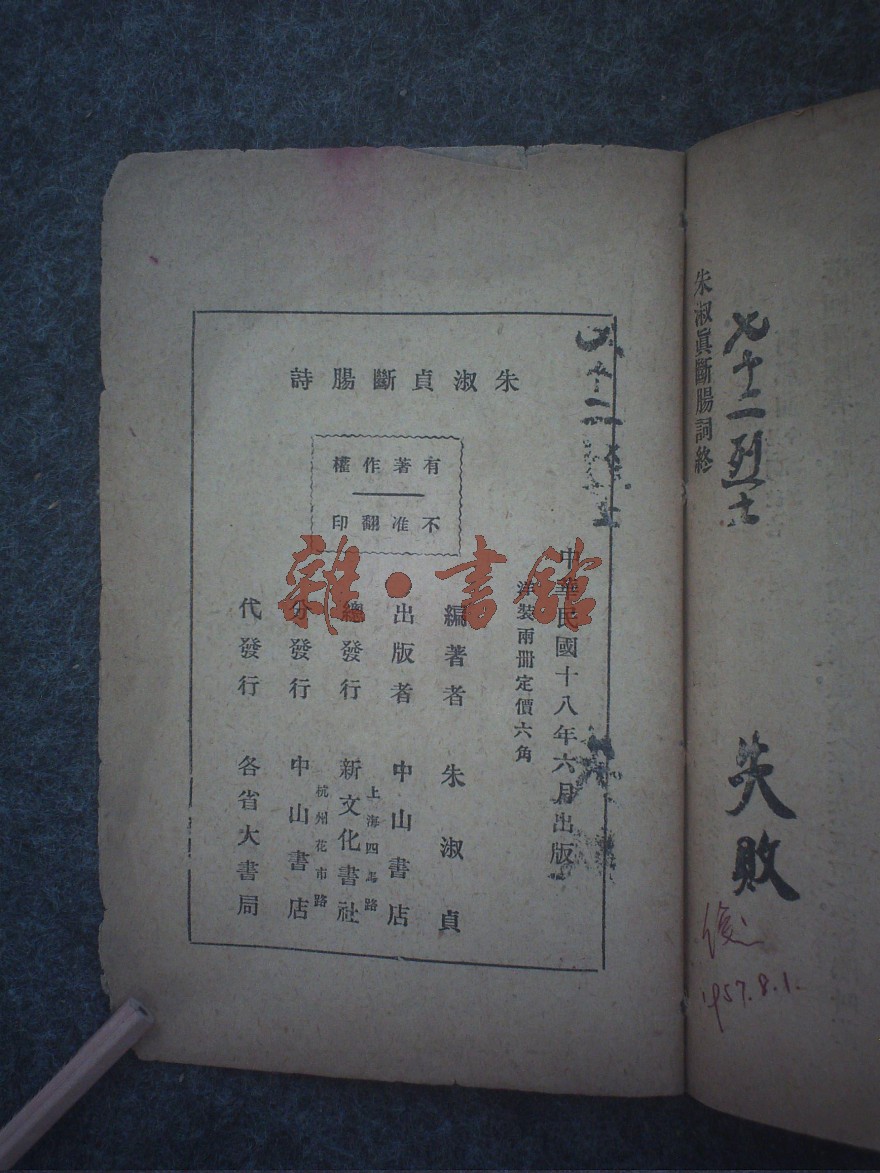 朱淑眞斷腸詞終
七十二烈士
失敗
1957.8.1.
朱淑貞斷腸詩
有著作權
不准翻印
中華民國十八年六月出版
洋裝兩册定價六角
編著者 朱淑貞
出版者 中山書店
上海四馬路
總發行 新文化書社
杭州花市路
分發行 中山書店
代發行 各省大書局
雜·書館